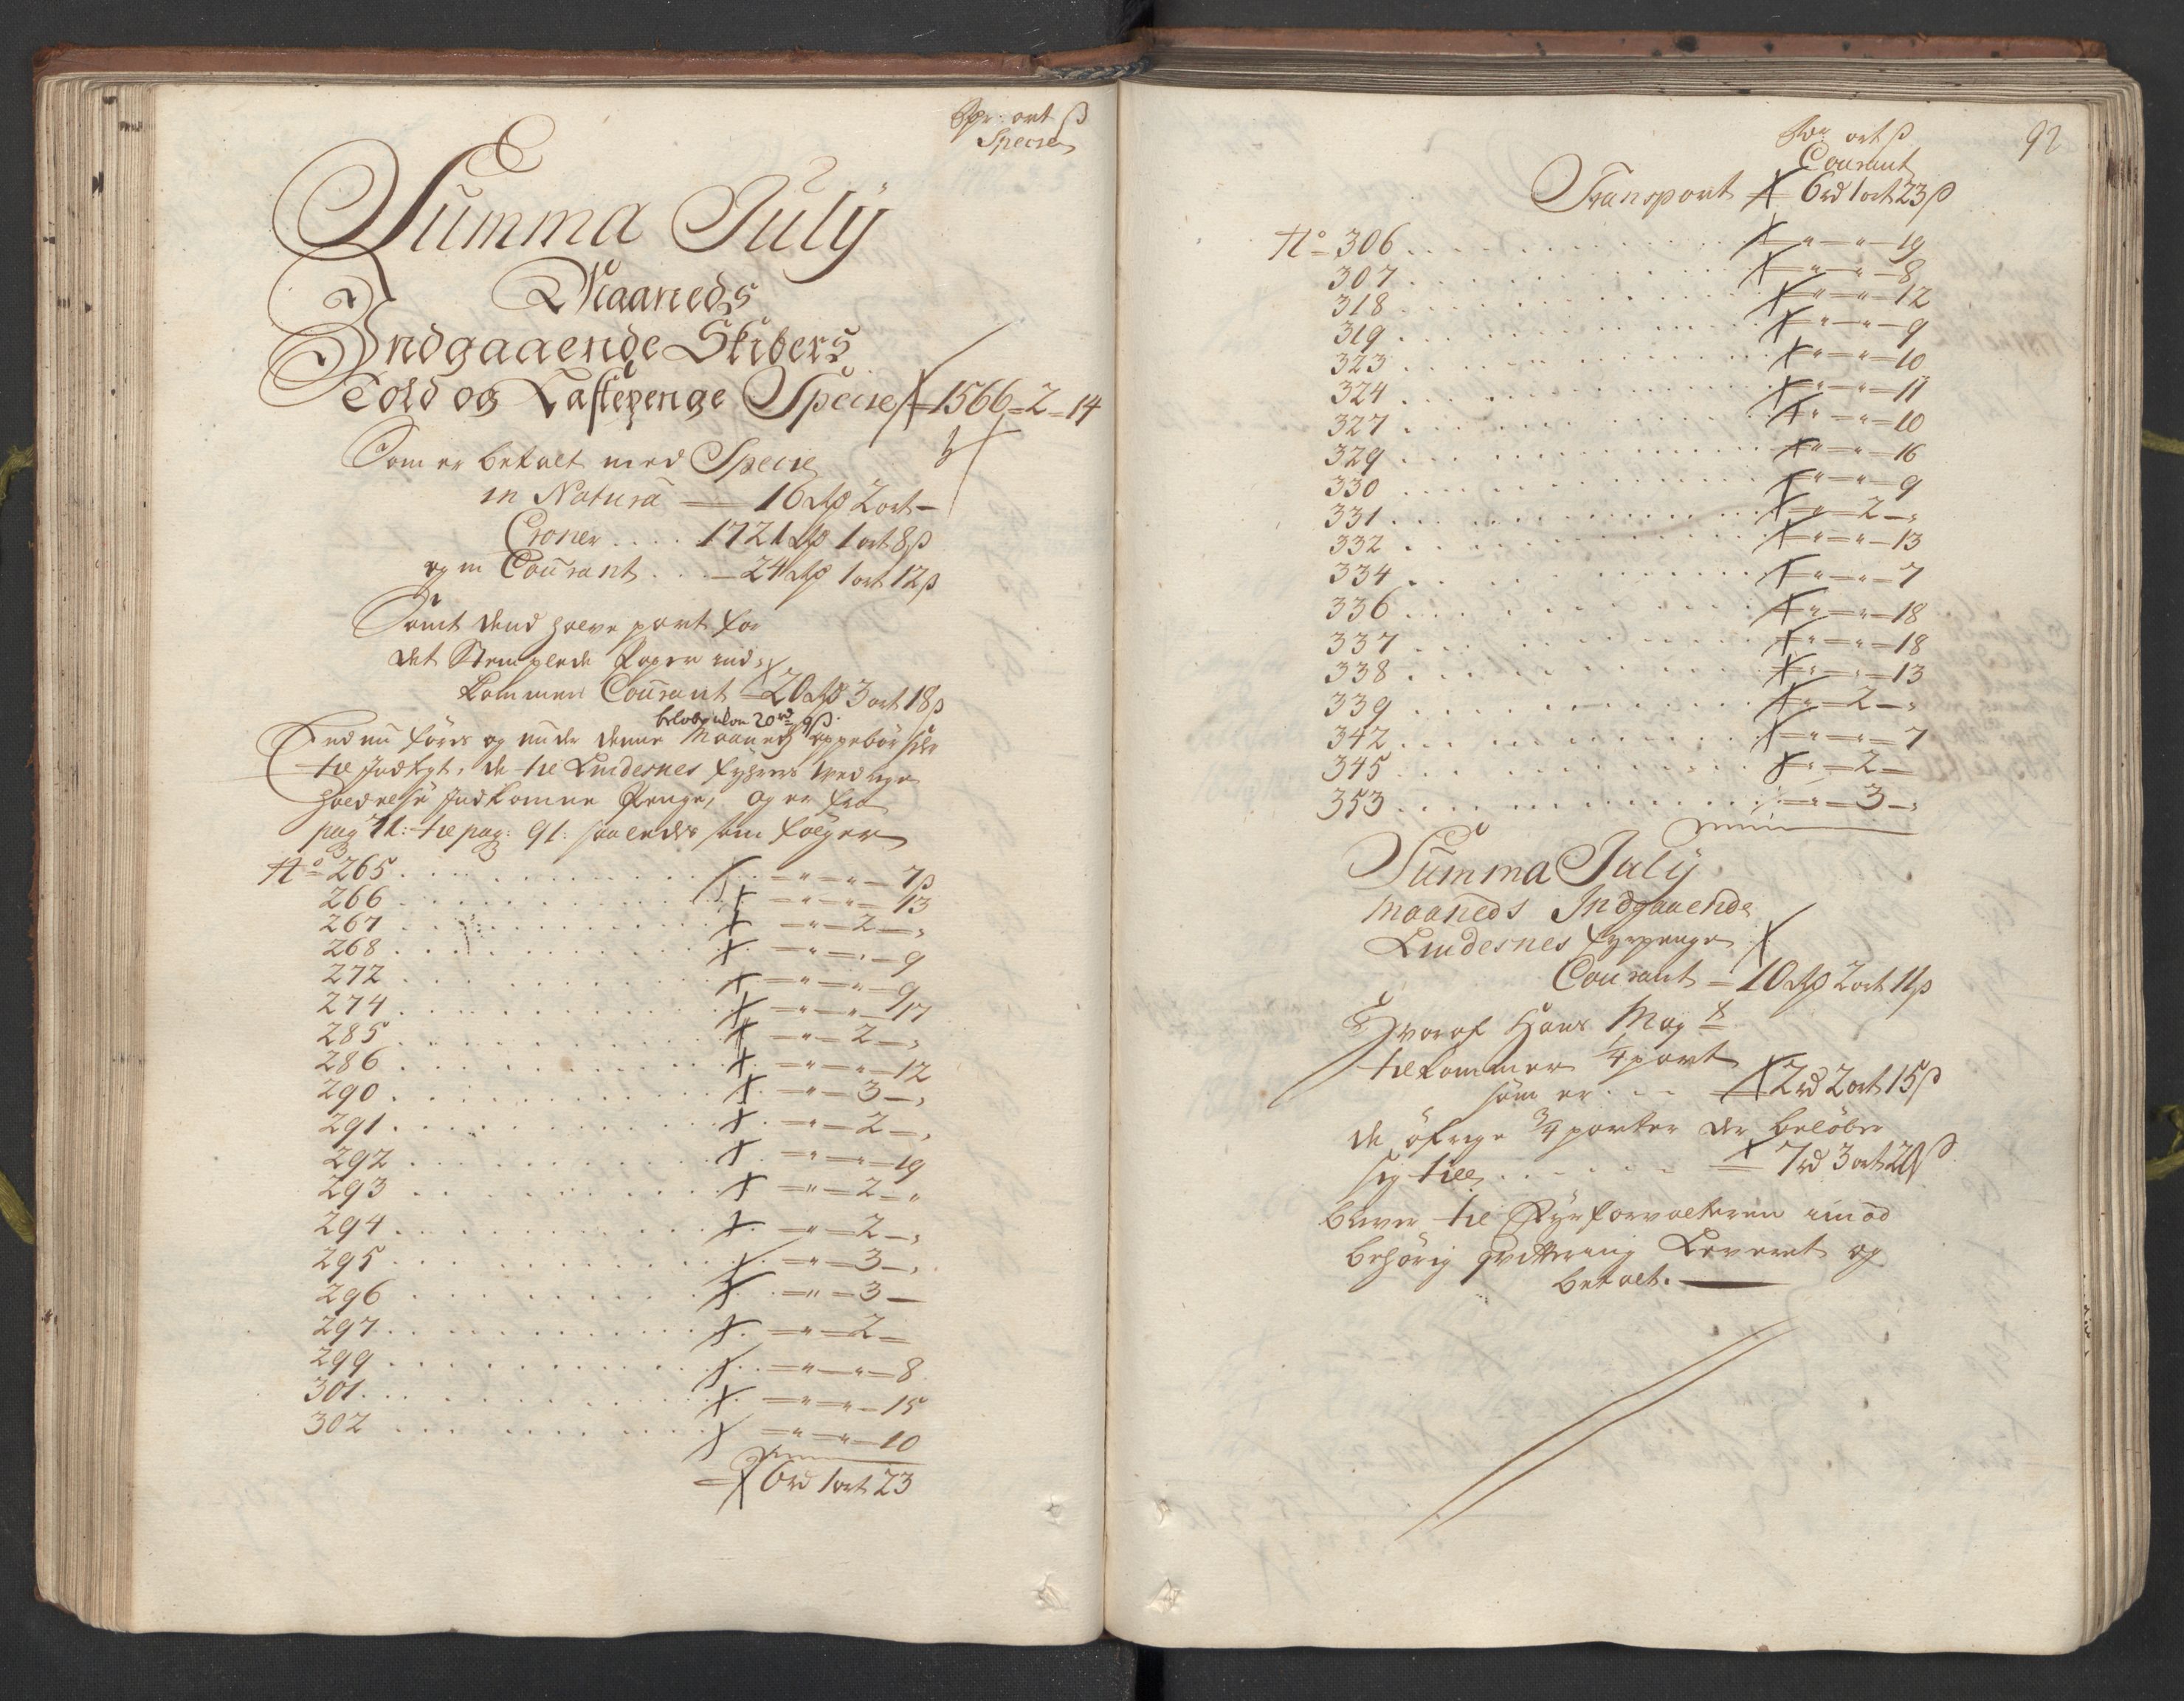 Rdr: ort ß
Specie
Summa July
Maaneds
Indgaaende Skibers
Told og Lastepenge Specie 1566-2-14
Som er betalt med Specie
in Natura 16 Rd 2 ort -
Croner .... 1721 Rd 1 ort 8 ß
og in Courant . . . 24 Rd 1 ort 12 ß
Samt dend halve part for
det Stemplede Papir ind-
kommen Courant 20 Rd 3 ort 18 ß
beløber alon 20 rd 9 ß.
Endnu føris og under denne Maaneds oppebørseler
til Indtægt, de til Lindesnes fyhrers vedlige
holdelse Indkomne Penge, og er fra
pag 71: til pag: 91: saaledes som følger
No 265 . . . " - " - 7 ß
266 . . . " - " - 13
267 . . . " - 2 -
268 . . . " - " - 9
272 . . . " - " - 9
274 . . . " - " - 17
285 . . . " - 2 -
286 . . . " - " - 12
290 . . . " - 3 -
291 . . . " - 2 -
292 . . . " - " - 19
293 . . . " - 2 - "
294 . . . " - 2 -
295 . . . " - 3 -
296 . . . " - 3 -
297 . . . " - 2 -
299 . . . " - " - 8
301 . . . " - " - 15
302 . . . " - " - 10
6 rd 1 ort 23
92
Rdr ort ß
Courant
Transport 6 rd 1 ort 23 ß
No 306 . . . " - " - 19
307 . . . " - " - 8
318 . . . " - " - 12
319 . . . " - " - 9
323 . . . " - " - 10
324 . . . " - " - 11
327 . . . " - " - 10
329 . . . " - " - 16
330 . . . " - " - 9
331 . . . " - 2 -
332 . . . " - " - 13
334 . . . " - " - 7
336 . . . " - " - 18
337 . . . " - " - 18
338 . . . " - " - 13
339 . . . " - 2 -
342 . . . " - " - 7
345 . . . " - 2 -
353 . . . " - 3 -
Summa July
Maaneds Indgaaende
Lindesnes fyrpenge
Courant 10 Rd 2 ort 11 ß
Hvoraf Hans May t
tilkommer 1/4 part
som er . . . 2 rd 2 ort 15 ß
de øfrige 3/4 parter der beløber
sig till . . . 7 rd 3 ort 20 ß
bliver til Fyrforvalteren imod
behørig qvittering Leveret og
betalt.